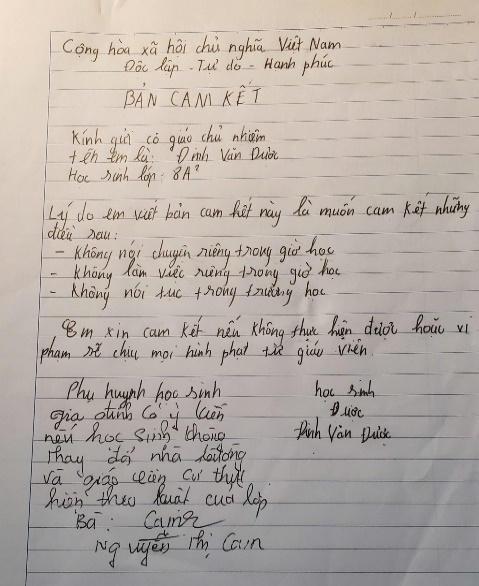 Cộng hòa xã hội chủ nghĩa Việt Nam
Độc lập - Tự do - Hạnh phúc
BẢN CAM KẾT
Kính gửi cô giáo chủ nhiệm
tên em là: Đinh Văn Dược
Học sinh lớp: 8A²
Lý do em viết bản cam kết này là muốn cam kết những
điều sau:
- Không nói chuyện riêng trong giờ học
- Không làm việc riêng trong giờ học
- Không nói tục trong trường học
Em xin cam kết nếu không thực hiện được hoặc vi
phạm sẽ chịu mọi hình phạt từ giáo viên.
Phụ huynh học sinh
gia đình có ý kiến
nếu học sinh không
thay đổi nhà trường
và giáo viên cứ thực
hiện theo luật của lớp
Bà: Cam
Nguyễn Thị Cam
học sinh
Dược
Đinh Văn Dược